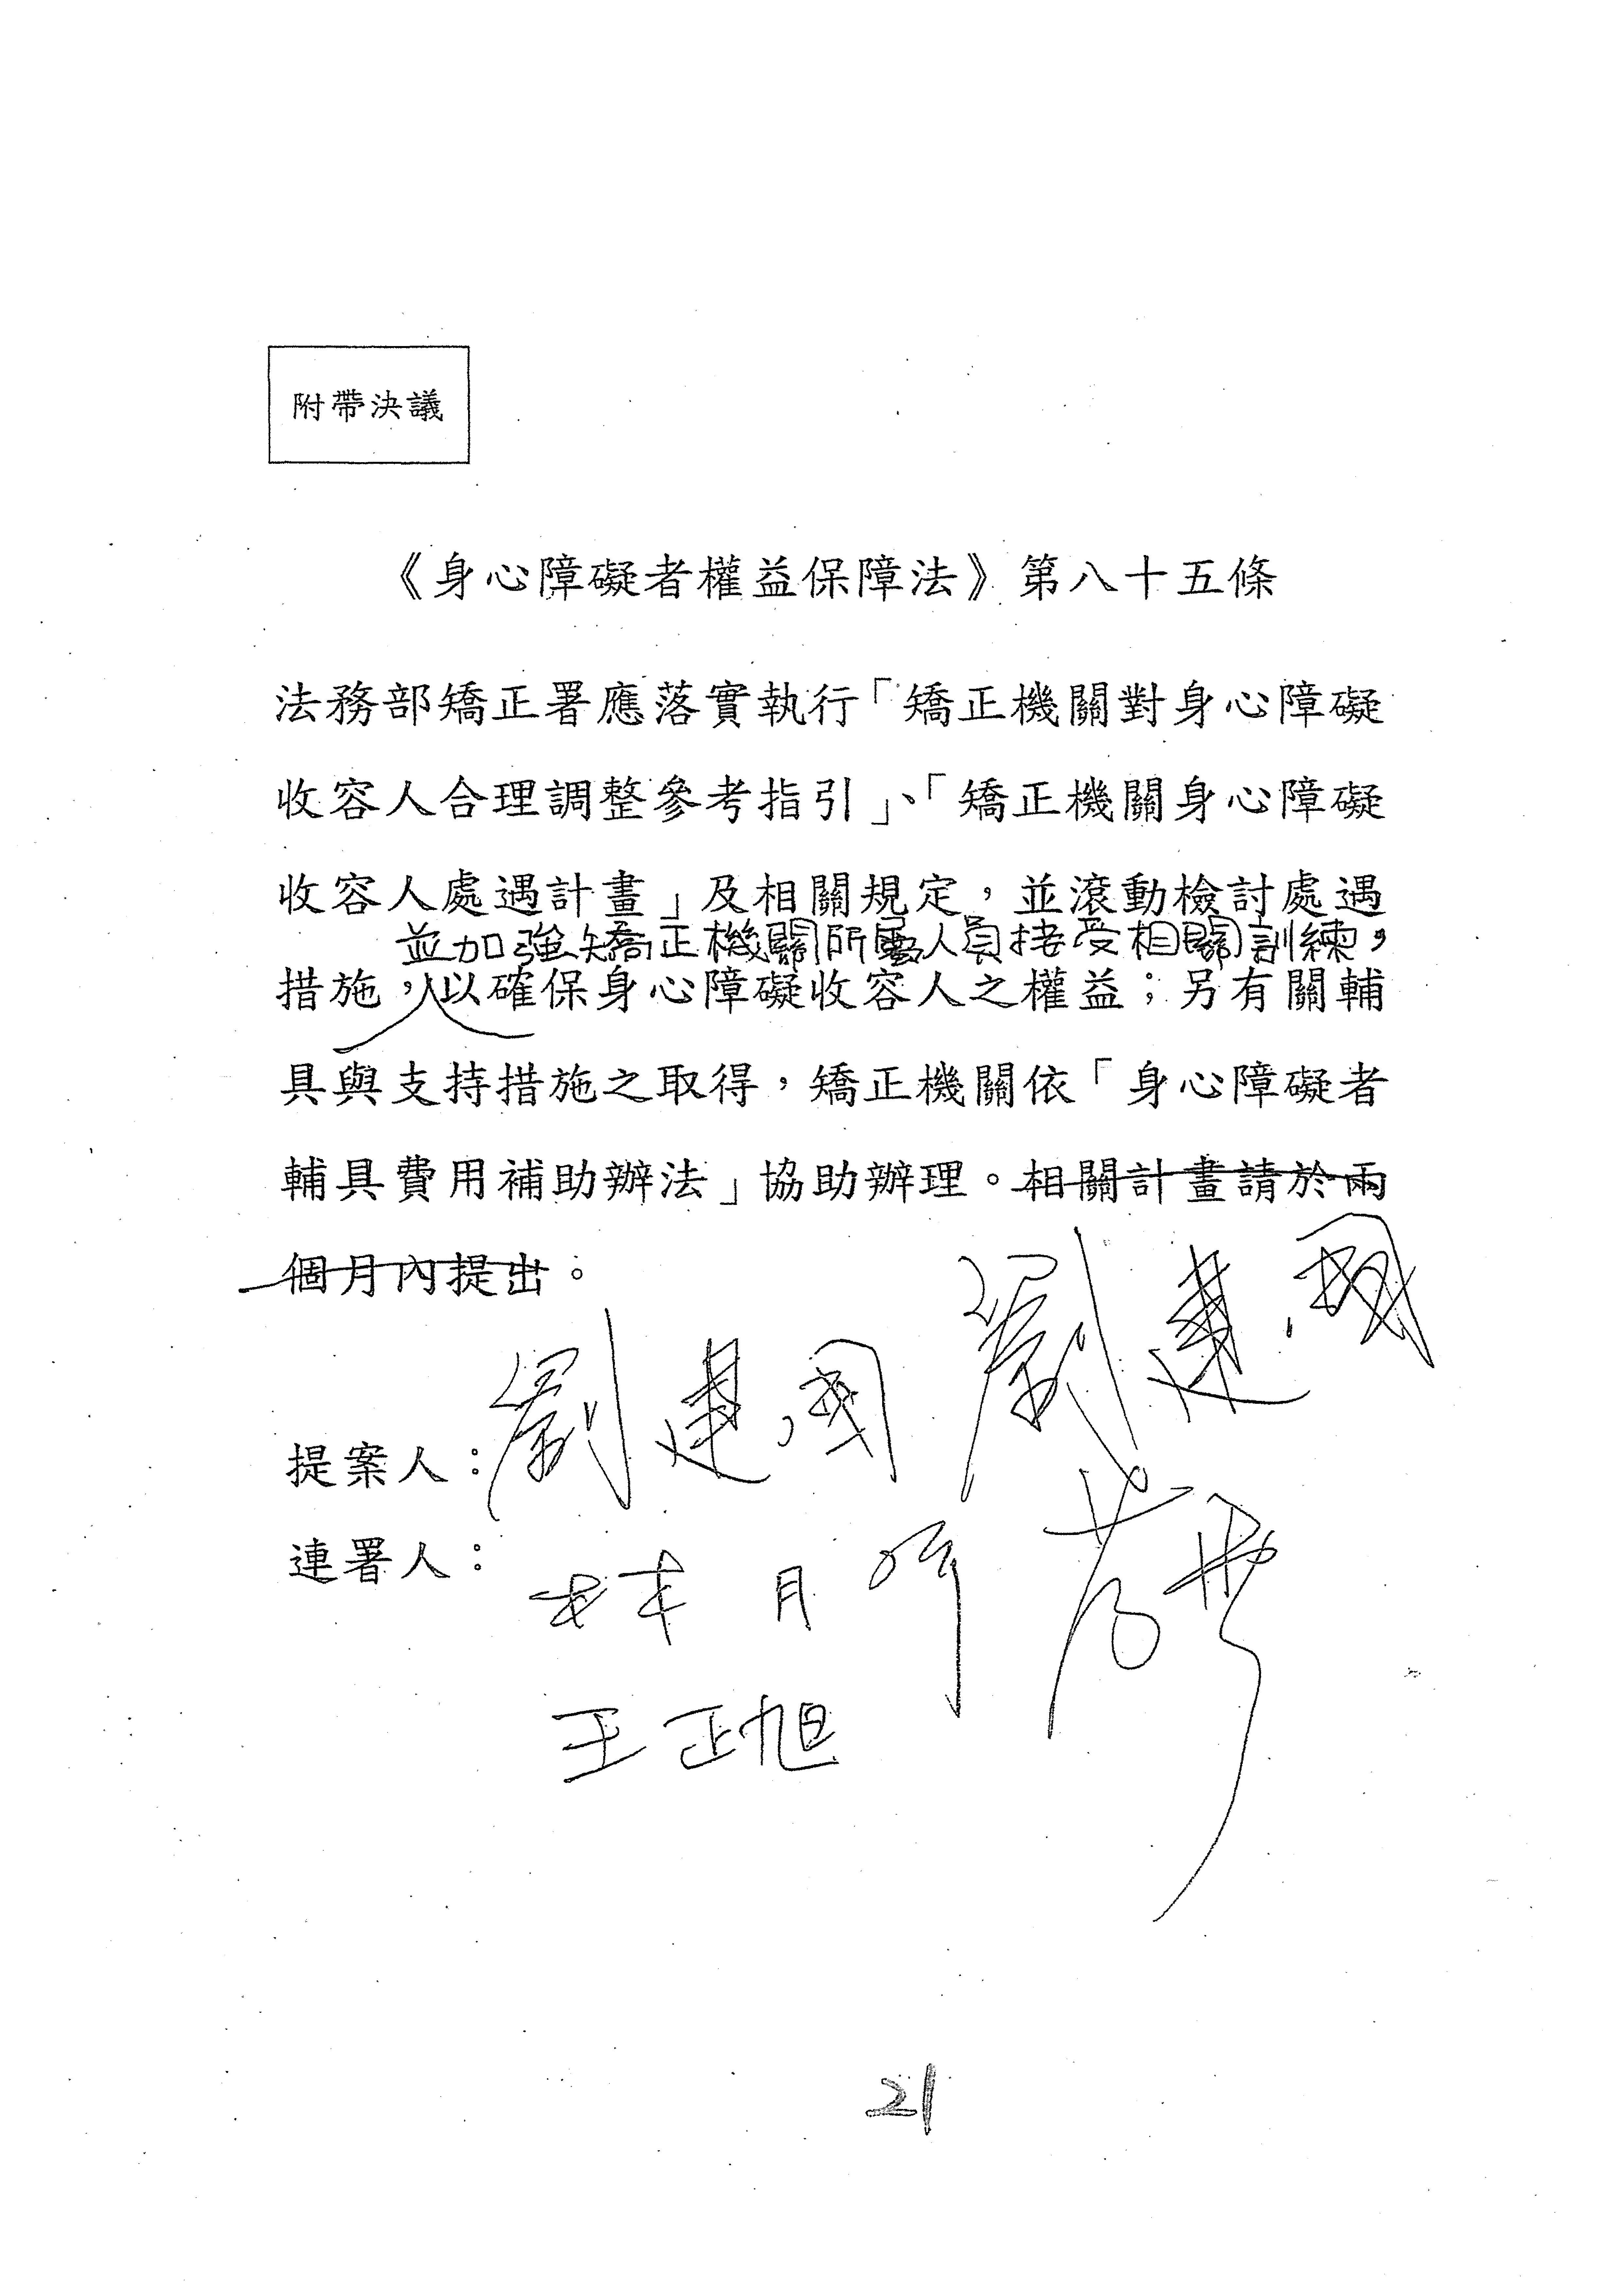 附帶決議
《身心障礙者權益保障法》第八十五條
法務部矯正署應落實執行「矯正機關對身心障礙
收容人合理調整參考指引」、「矯正機關身心障礙
收容人處遇計畫」及相關規定,並滾動檢討處遇
並加強矯正機關所屬人員接受相關訓練,
措施,以確保身心障礙收容人之權益;另有關輔
具與支持措施之取得,矯正機關依「身心障礙者
輔具費用補助辦法」協助辦理。相關計畫請於兩
個月內提出。
劉建國
提案人:劉建國
連署人:林月琴
王正旭
21